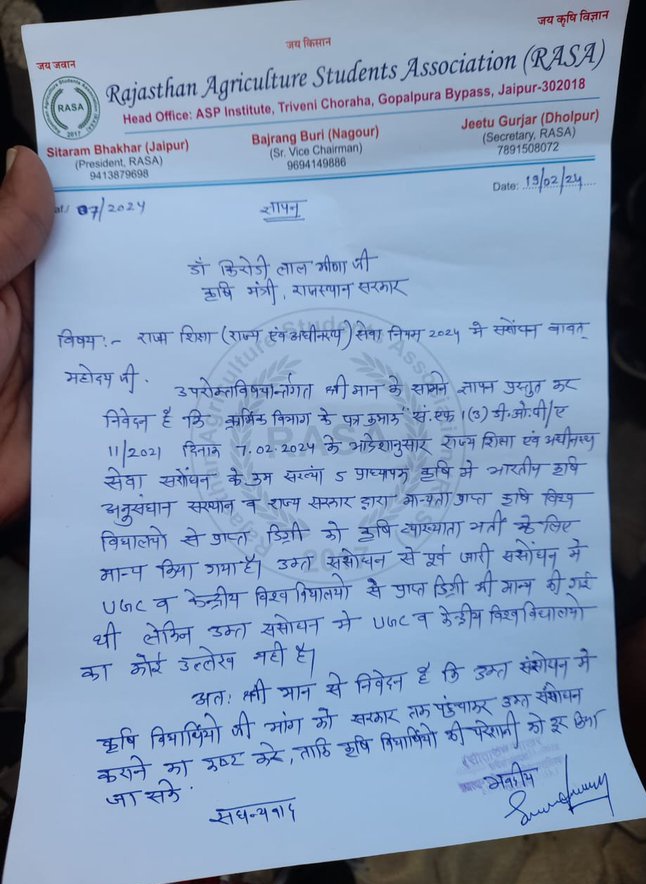 जय कृषि विज्ञान
जय किसान
जय जवान
Rajasthan Agriculture Students Association (RASA)
Head Office: ASP Institute, Triveni Choraha, Gopalpura Bypass, Jaipur-302018
RASA
2017
Sitaram Bhakhar (Jaipur)
(President, RASA)
9413879698
Bajrang Buri (Nagour)
(Sr. Vice Chairman)
9694149886
Jeetu Gurjar (Dholpur)
(Secretary, RASA)
7891508072
07/2024
Date: 19/02/24
ज्ञापन
डॉ किरोडी लाल मीणा जी
कृषि मंत्री, राजस्थान सरकार
विषय:- राज्य शिक्षा (राज्य एवं अधीनस्थ) सेवा नियम 2024 मे संशोधन बाबत्
महोदय जी.
उपरोक्त विषयान्तर्गत श्री मान के सामने ज्ञापन प्रस्तुत कर
निवेदन है कि कार्मिक विभाग के पत्र क्रमांक सं. एफ 1(3) डी.ओ.पी/ए
11/2021 दिनांक 7.02.2024 के आदेशानुसार राज्य शिक्षा एवं अधीनस्थ
सेवा संशोधन के क्रम सख्यां 5 प्राध्यापक कृषि मे भारतीय कृषि
अनुसंधान संस्थान व राज्य सरकार द्वारा मान्यता प्राप्त कृषि विश्व
विधालयो से प्राप्त डिग्री को कृषि व्याख्याता भर्ती के लिए
मान्य किया गया है। उक्त संसोधन से पूर्व जारी संसोधन मे
UGC व केन्द्रीय विश्व विधालयो से प्राप्त डिग्री भी मान्य की गई
थी लेकिन उक्त संसोधन मे UGC व केन्द्रीय विश्वविधालयो
का कोई उल्लेख नही है।
अत: श्री मान से निवेदन है कि उक्त संसोधन मे
कृषि विधार्थियो की मांग को सरकार तक पंहुचाकर उक्त संसोधन
कराने का कष्ट करे, ताकि कृषि विधार्थियो की परेशानी को दूर किया
जा सके.
सधन्यवाद
भवदीय